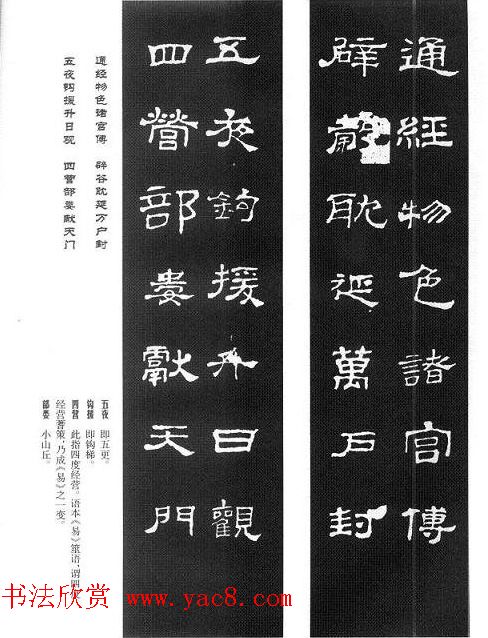 通經物色諸宮傅
辟穀耽延萬户封
五夜鉤援升日觀
四營部婁獻天門
通经物色诸宫傅 辟谷耽延万户封
五夜钩援升日观 四营部娄献天门
五夜 即五更。
钩援 即钩梯。
四营 此指四度经营。语本《易》筮语,谓四
经营蓍策,乃成《易》之一变。
部娄 小山丘。
书法欣赏 www.yac8.com